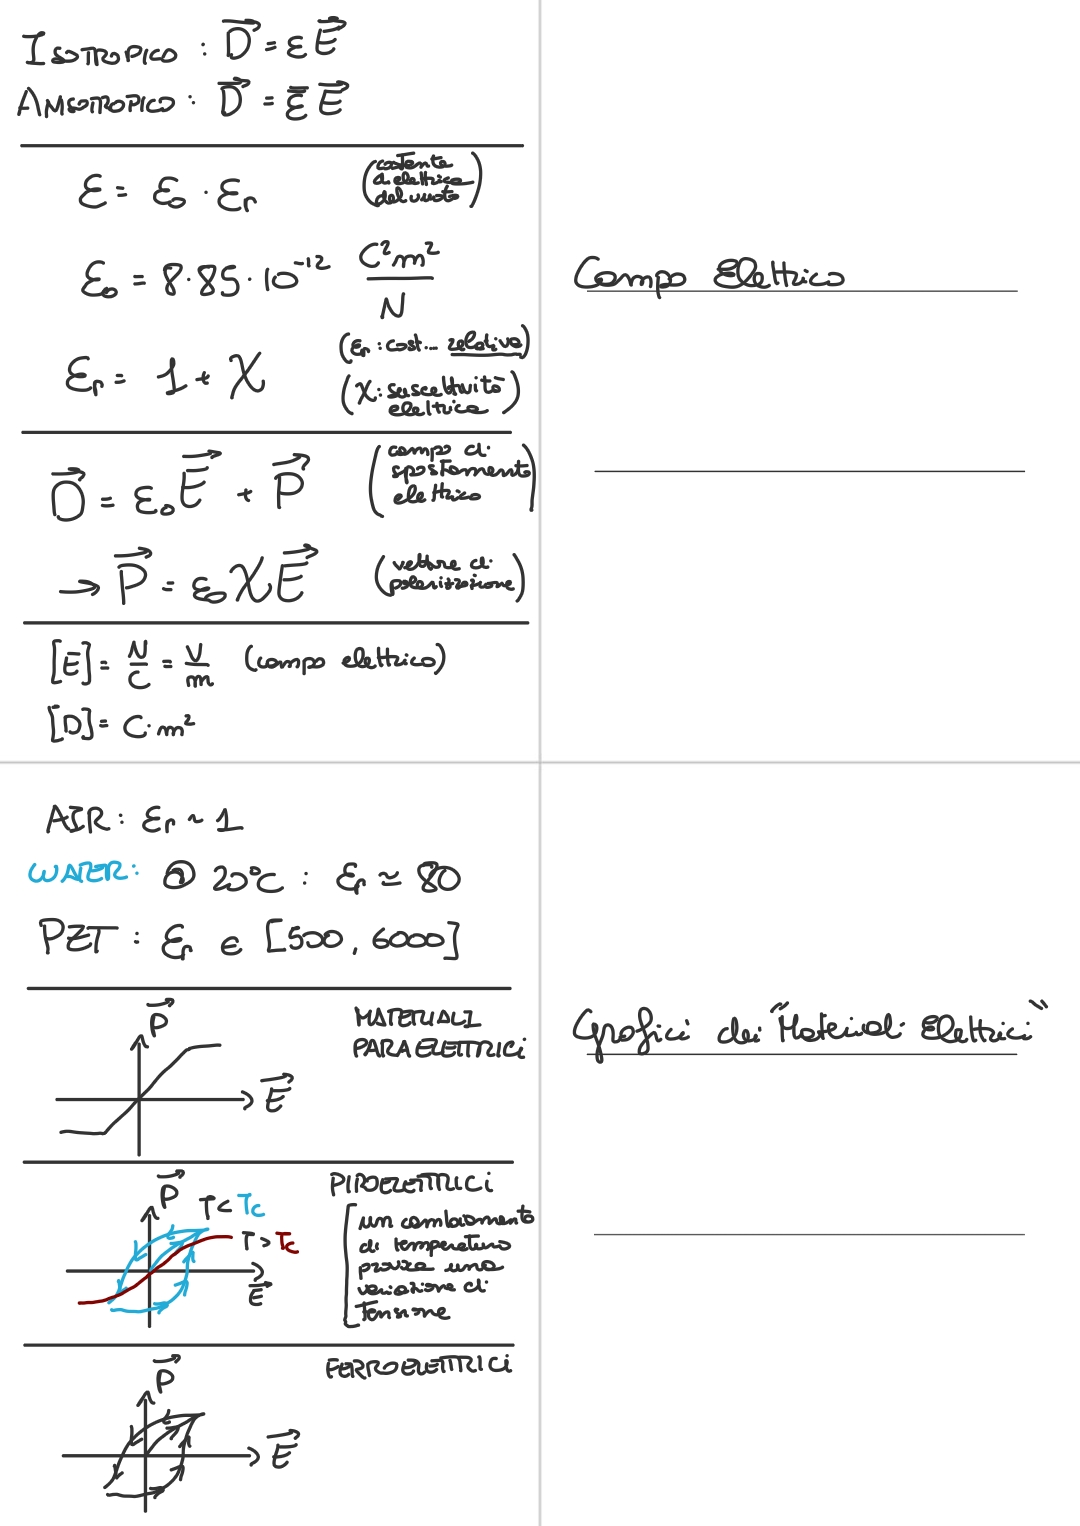 ISOTROPICO : D = ε E
ANISOTROPICO : D = ε E
ε = ε₀ · εr (costente dielettrica del vuoto)
ε₀ = 8.85 · 10⁻¹² C²m² / N
εr = 1 + χ (εr : cost... relativa)
(χ : suscettività elettrica)
D = ε₀ E + P (campo di spostamento elettrico)
→ P = ε₀ χ E (vettore di polarizzazione)
[E] = N/C = V/m (campo elettrico)
[D] = C · m²
Campo Elettrico
AIR : εr ~ 1
WATER : @ 20°C : εr ≃ 80
PZT : εr ∈ [500, 6000]
P
E
MATERIALI
PARAELETTRICI
P
T < Tc
T > Tc
E
PIROELETTRICI
un cambiamento
di temperatura
provoca una
variazione di
tensione
FERROELETTRICI
P
E
Grafici dei "Materiali Elettrici"